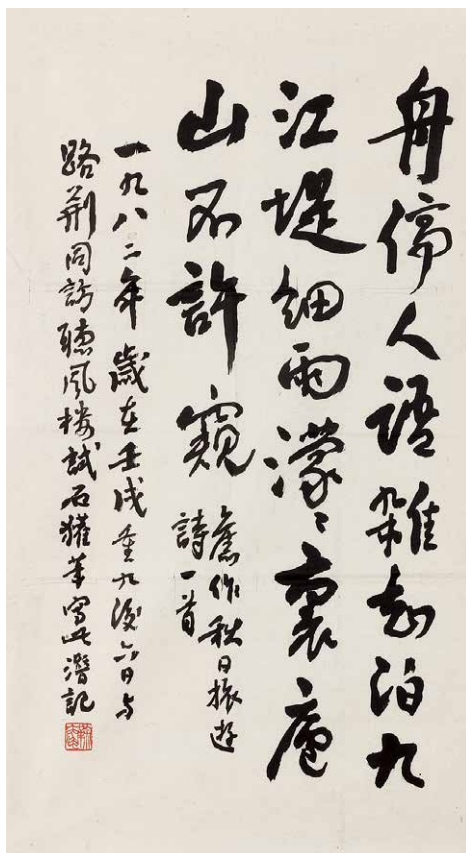 舟停人语杂知泊九
江堤细雨濛〻里庐
山不許窺
舊作秋日旅遊
詩一首
一九八二年歲在壬戌重九後六日与
路荆同訪聽風楼試石獾筆寫此潛記